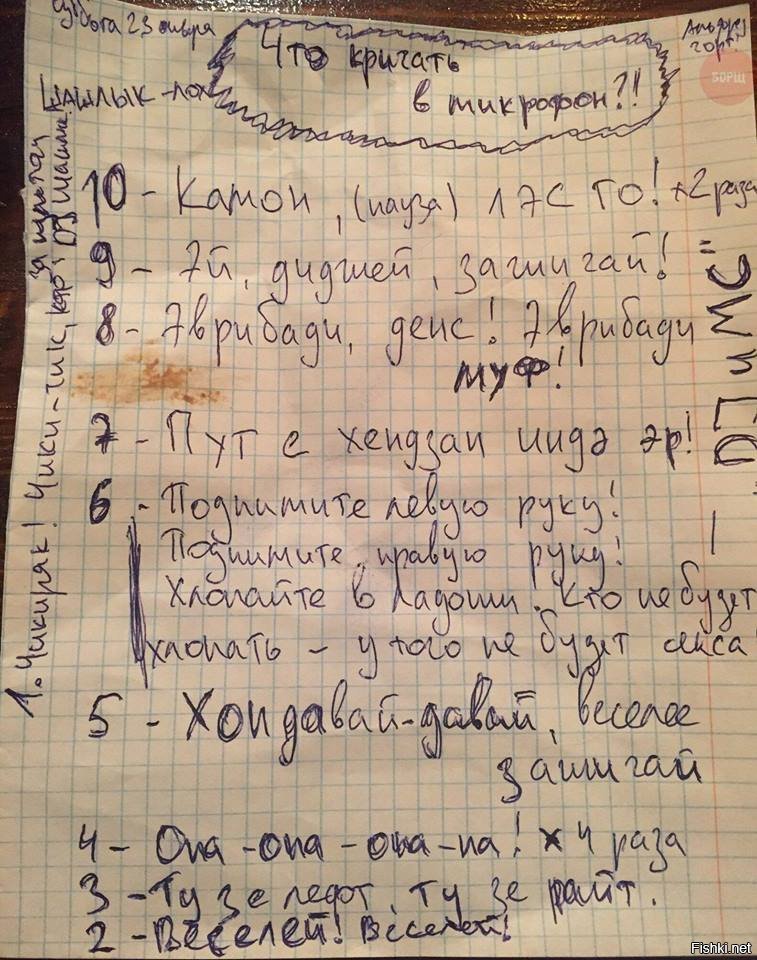 Суббота 23 января
Что кричать
в микрофон?!!
БОРЩ
ШАШЛЫК-
10 - Камон, (пауза) ЛЭС ГО! х2 раза
9 - Эй, диджей, зажигай!
8 - Эврибади, денс! Эврибади
муф!
7 - Пут ё хендзап индэ эр!
6 - Поднимите левую руку!
Поднимите правую руку!
Хлопайте в ладоши! Кто не будет
хлопать - у того не будет секса
5 - Хоп давай-давай, веселее
зажигай
4 - Опа-опа-опа-па! х 4 раза
3 - Ту зе лефт, ту зе райт.
2 - Веселей! Веселей!
1. Чикиряк! Чики-пик,
за пультом
DJ
DJ и МС
Fishki.net